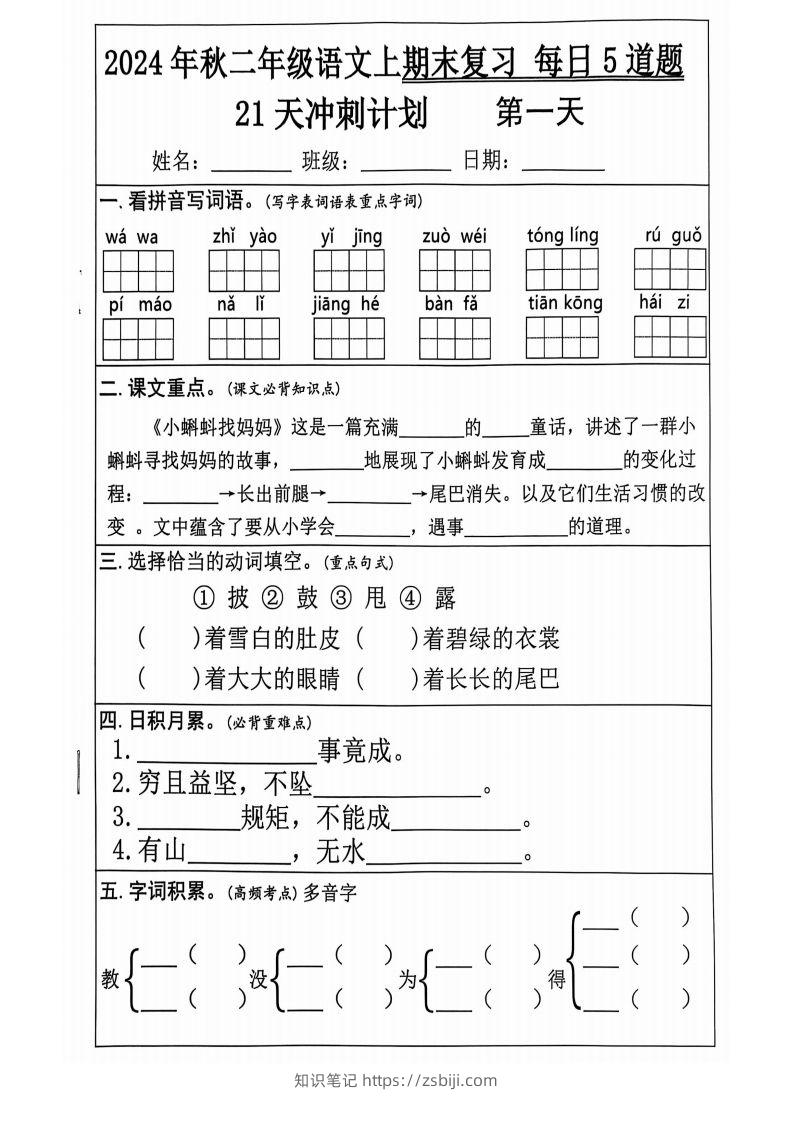 2024 年秋二年级语文上期末复习 每日 5 道题
21 天冲刺计划 第一天
姓名：______ 班级：______ 日期：______
一. 看拼音写词语。(写字表词语表重点字词)
wá wa zhǐ yào yǐ jīng zuò wéi tóng líng rú guǒ
pí máo nǎ lǐ jiāng hé bàn fǎ tiān kōng hái zi
二. 课文重点。(课文必背知识点)
《小蝌蚪找妈妈》这是一篇充满______的____童话，讲述了一群小
蝌蚪寻找妈妈的故事，______地展现了小蝌蚪发育成______的变化过
程：______→长出前腿→______→尾巴消失。以及它们生活习惯的改
变 。文中蕴含了要从小学会______，遇事________的道理。
三. 选择恰当的动词填空。(重点句式)
① 披 ② 鼓 ③ 甩 ④ 露
( )着雪白的肚皮 ( )着碧绿的衣裳
( )着大大的眼睛 ( )着长长的尾巴
四. 日积月累。(必背重难点)
1.____________事竟成。
2.穷且益坚，不坠____________。
3.________规矩，不能成__________。
4.有山________，无水____________。
五. 字词积累。(高频考点) 多音字
教 { ___ ( ) ___ ( ) 没 { ___ ( ) ___ ( ) 为 { ___ ( ) ___ ( ) 得 { ___ ( ) ___ ( ) ___ ( )
知识笔记 https://zsbiji.com